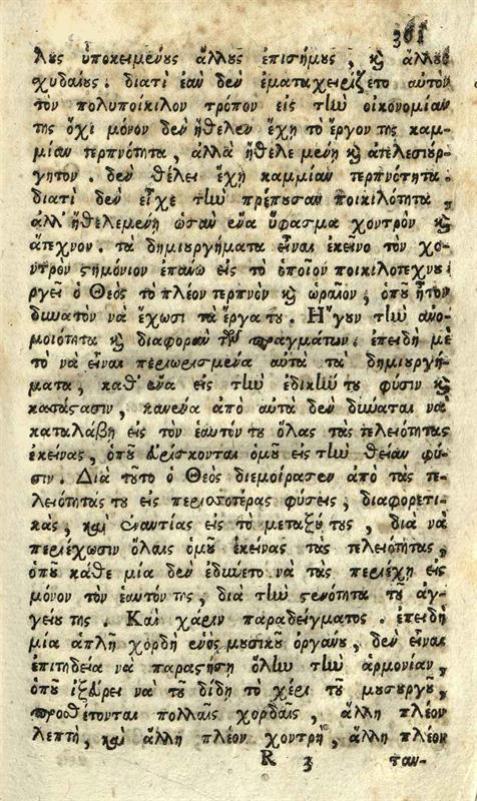 361
λους ὑποκειμένους ἄλλους ἐπισήμους, καὶ ἄλλους
χυδαίους. διατὶ ἐὰν δὲν ἐμεταχειρίζετο αὐτὸν
τὸν πολυποίκιλον τρόπον εἰς τὴν οἰκονομίαν
της ὄχι μόνον δὲν ἤθελεν ἔχῃ τὸ ἔργον της καμ-
μίαν τερπνότητα, ἀλλὰ ἤθελε μένῃ καὶ ἀτελεσιούρ-
γητον. δὲν θέλει ἔχῃ καμμίαν τερπνότητα.
διατὶ δὲν εἶχε τὴν πρέπουσαν ποικιλότητα,
ἀλλ' ἤθελε μένῃ ὡσὰν ἕνα ὕφασμα χοντρὸν καὶ
ἄτεχνον. τὰ δημιουργήματα εἶναι ἐκεῖνο τὸν χο-
ντρὸν στημόνιον ἐπάνω εἰς τὸ ὁποῖον ποικιλοτεχνου-
ργεῖ ὁ Θεὸς τὸ πλέον τερπνὸν καὶ ὡραῖον, ὁποῦ ἦτον
δυνατὸν νὰ ἔχωσι τὰ ἔργα του. Ἤγουν τὴν ἀνο-
μοιότητα καὶ διαφορὰν τῶν πραγμάτων. ἐπειδὴ μὲ
τὸ νὰ εἶναι περιωρισμένα αὐτὰ τὰ δημιουργή-
ματα, καθ' ἕνα εἰς τὴν ἐδικήν του φύσιν καὶ
κατάστασιν, κανένα ἀπὸ αὐτὰ δὲν δύναται νὰ
καταλάβῃ εἰς τὸν ἑαυτόν του ὅλας τὰς τελειότητας
ἐκείνας, ὁποῦ εὑρίσκονται ὁμοῦ εἰς τὴν θείαν φύ-
σιν. Διὰ τοῦτο ὁ Θεὸς διεμοίρασεν ἀπὸ τὰς τε-
λειότητάς του εἰς περισσοτέρας φύσεις, διαφορετι-
κὰς, καὶ ἐναντίας εἰς τὸ μεταξύ τους, διὰ νὰ
περιέχωσιν ὅλαις ὁμοῦ ἐκείνας τὰς τελειότητας,
ὁποῦ κάθε μία δὲν ἐδύνετο νὰ τὰς περιέχῃ εἰς
μόνον τὸν ἑαυτόν της, διὰ τὴν στενότητα τοῦ ἀγ-
γείου της. Καὶ χάριν παραδείγματος. ἐπειδὴ
μία ἁπλῆ χορδὴ ἑνὸς μουσικοῦ ὀργάνου, δὲν εἶναι
ἐπιτήδεια νὰ παραστήσῃ ὅλην τὴν ἁρμονίαν,
ὁποῦ ἐξεύρει νὰ τοῦ δίδῃ τὸ χέρι τοῦ μουσουργοῦ,
προσθέτονται πολλαῖς χορδαῖς, ἄλλη πλέον
λεπτὴ, καὶ ἄλλη πλέον χοντρὴ, ἄλλη πλέον
R 3 ταν-